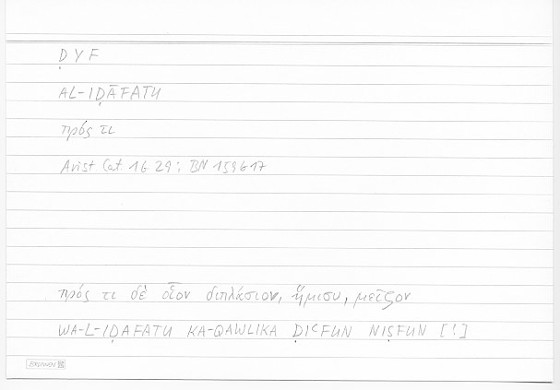 ḌYF
AL-IḌĀFATU
πρός τι
Arist Cat 1b 29; BN 159b17
πρός τι δὲ οἷον διπλάσιον, ἥμισυ, μεῖζον
WA-L-IḌAFATU KA-QAWLIKA ḌICFUN NIṢFUN [!]